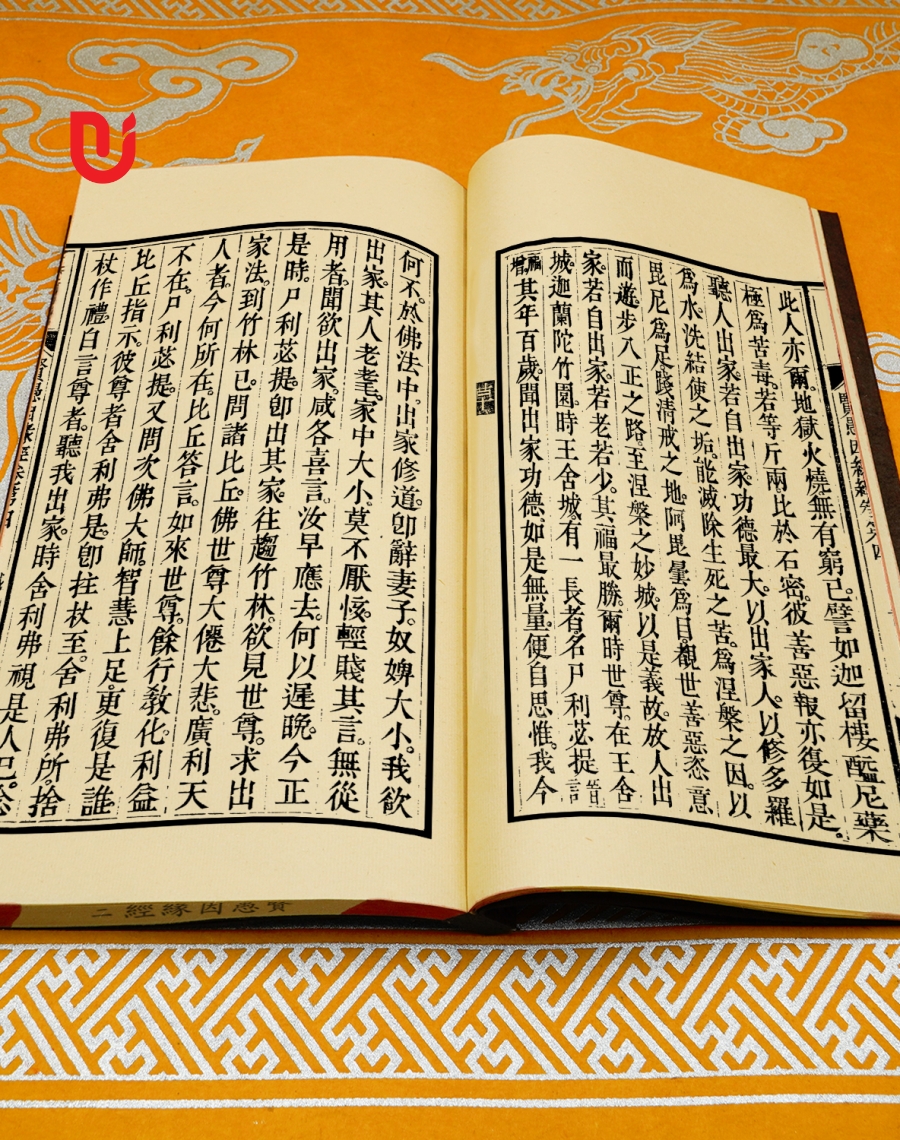 此人亦爾。地獄火燒無有窮已。譬如迦留樓醯尼藥
極爲苦毒。若等斤兩比於石密。彼善惡報亦復如是。
聽人出家。若自出家。功德最大。以出家人。以修多羅
爲水。洗結使之垢。能滅除生死之苦。爲涅槃之因。以
毘尼爲足。踐淸戒之地。阿毘曇爲目。觀世善惡。恣意
而遊。步八正之路。至涅槃之妙城。以是義故。放人出
家。若自出家。若老若少。其福最勝。爾時世尊。在王舍
城。迦蘭陀竹園。時王舍城有一長者。名尸利苾提
其年百歲。聞出家功德。如是無量。便自思惟。我今
何不於佛法中。出家修道。卽辭妻子。奴婢大小。我欲
出家。其人老耄。家中大小。莫不厭
輕賤其言。無從
用者。聞欲出家。咸各喜言。汝早應去。何以遲晚。今正
是時。尸利苾提。卽出其家。往趣竹林。欲見世尊。求出
家法。到竹林已。問諸比丘。佛世尊大仙大悲。廣利天
人者。今何所在。比丘答言。如來世尊。餘行敎化利益
不在。尸利苾提。又問次佛大師。智慧上足。更復是誰
比丘指示。彼尊者舍利弗是。卽拄杖至舍利弗所。捨
杖作禮。白言尊者。聽我出家。時舍利弗。視是人已。念
賢愚因緣經 二